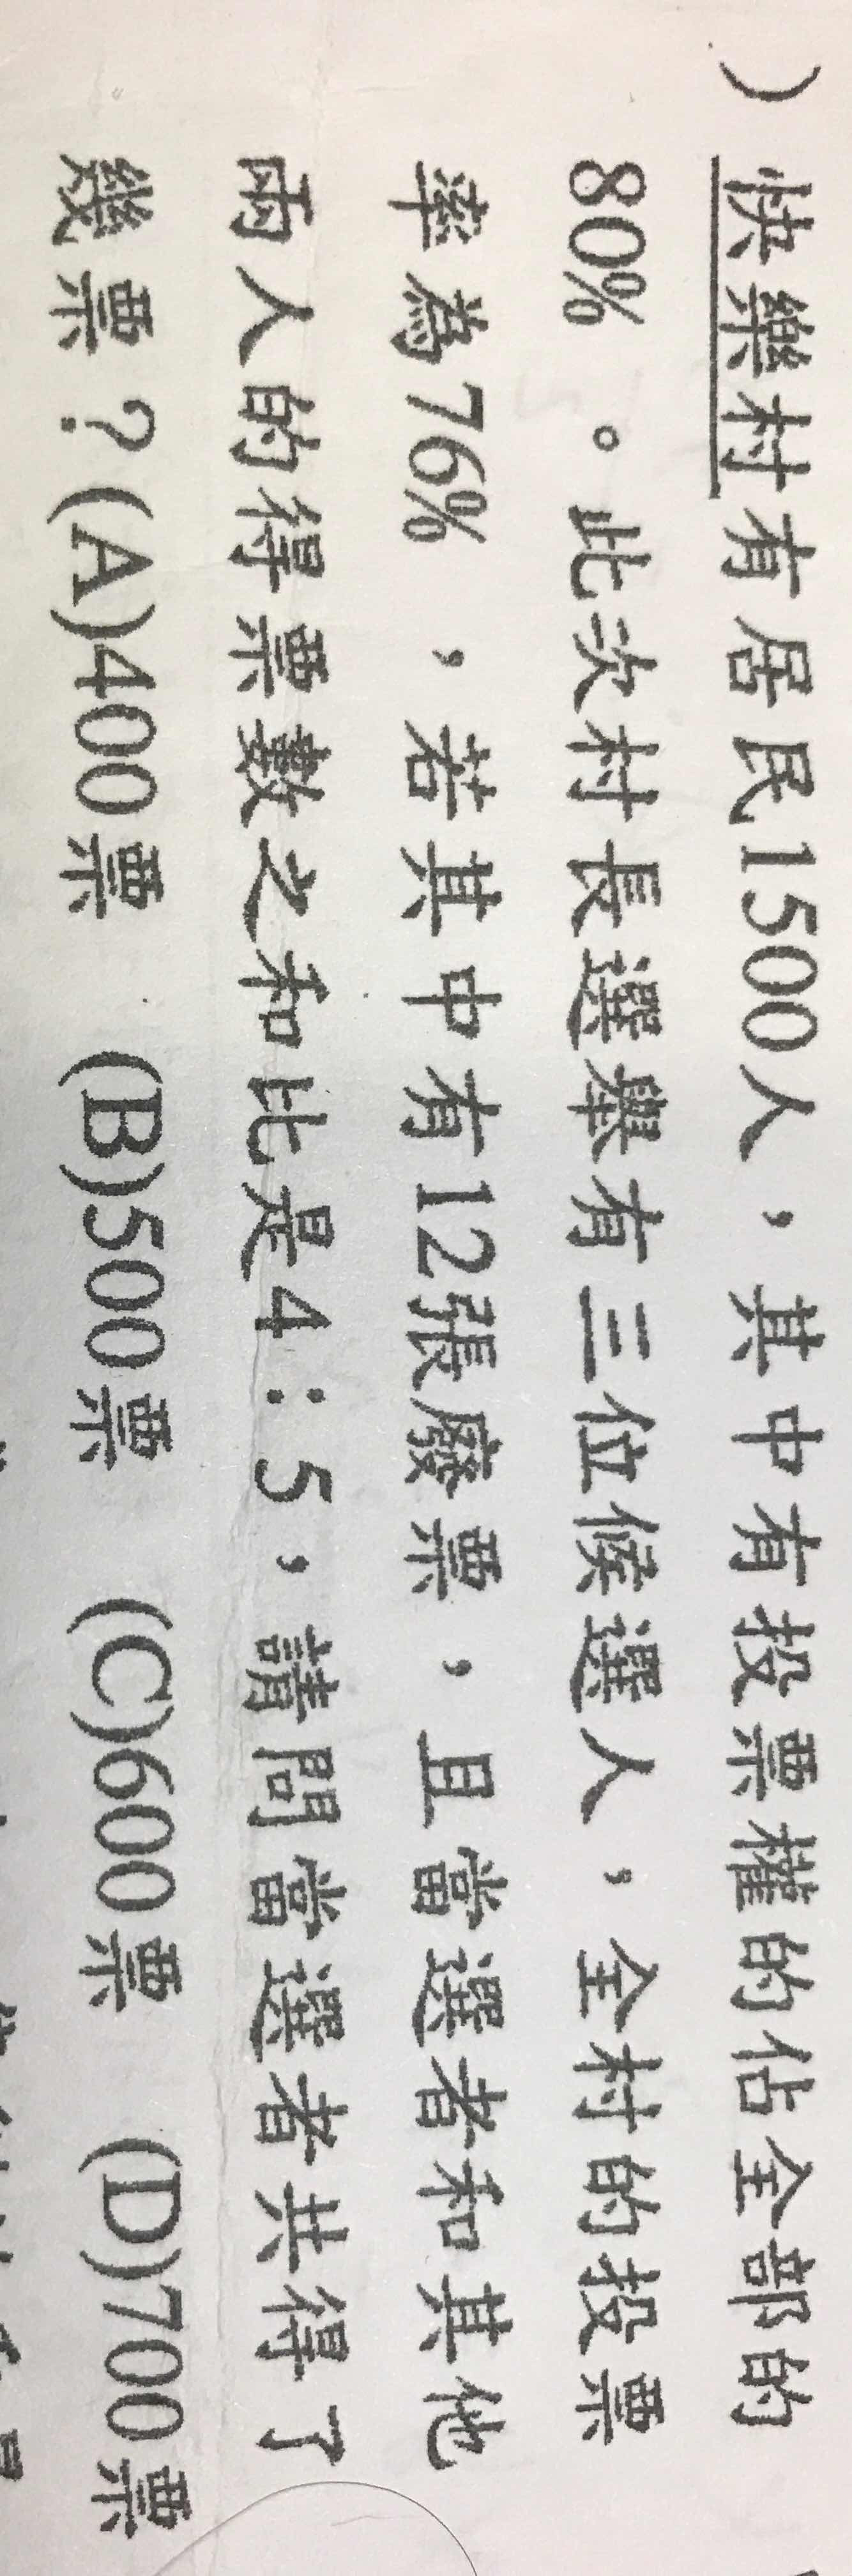 ）快樂村有居民1500人，其中有投票權的佔全部的
80%。此次村長選舉有三位候選人，全村的投票
率為76%，若其中有12張廢票，且當選者和其他
兩人的得票數之和比是4：5，請問當選者共得了
幾票？(A)400票 (B)500票 (C)600票 (D)700票